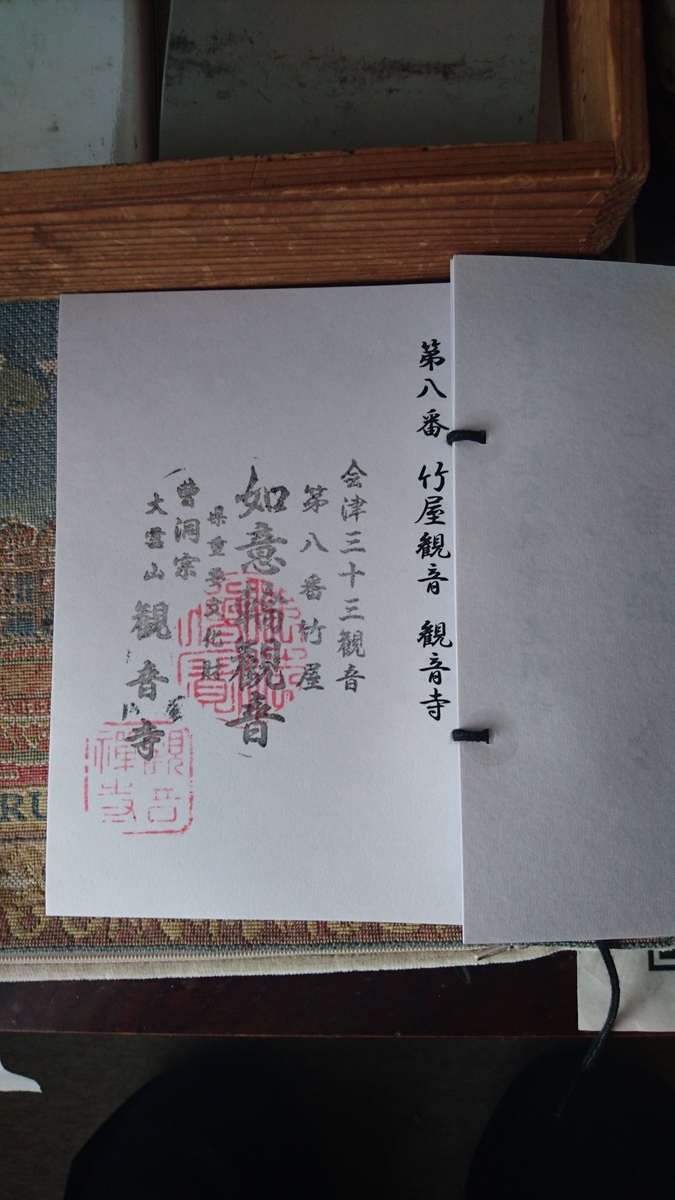 第八番 竹屋観音 観音寺
会津三十三観音
第八番竹屋
如意輪観音
県重要文化財
曹洞宗
大雲山 観音寺
観音
禅寺
RU